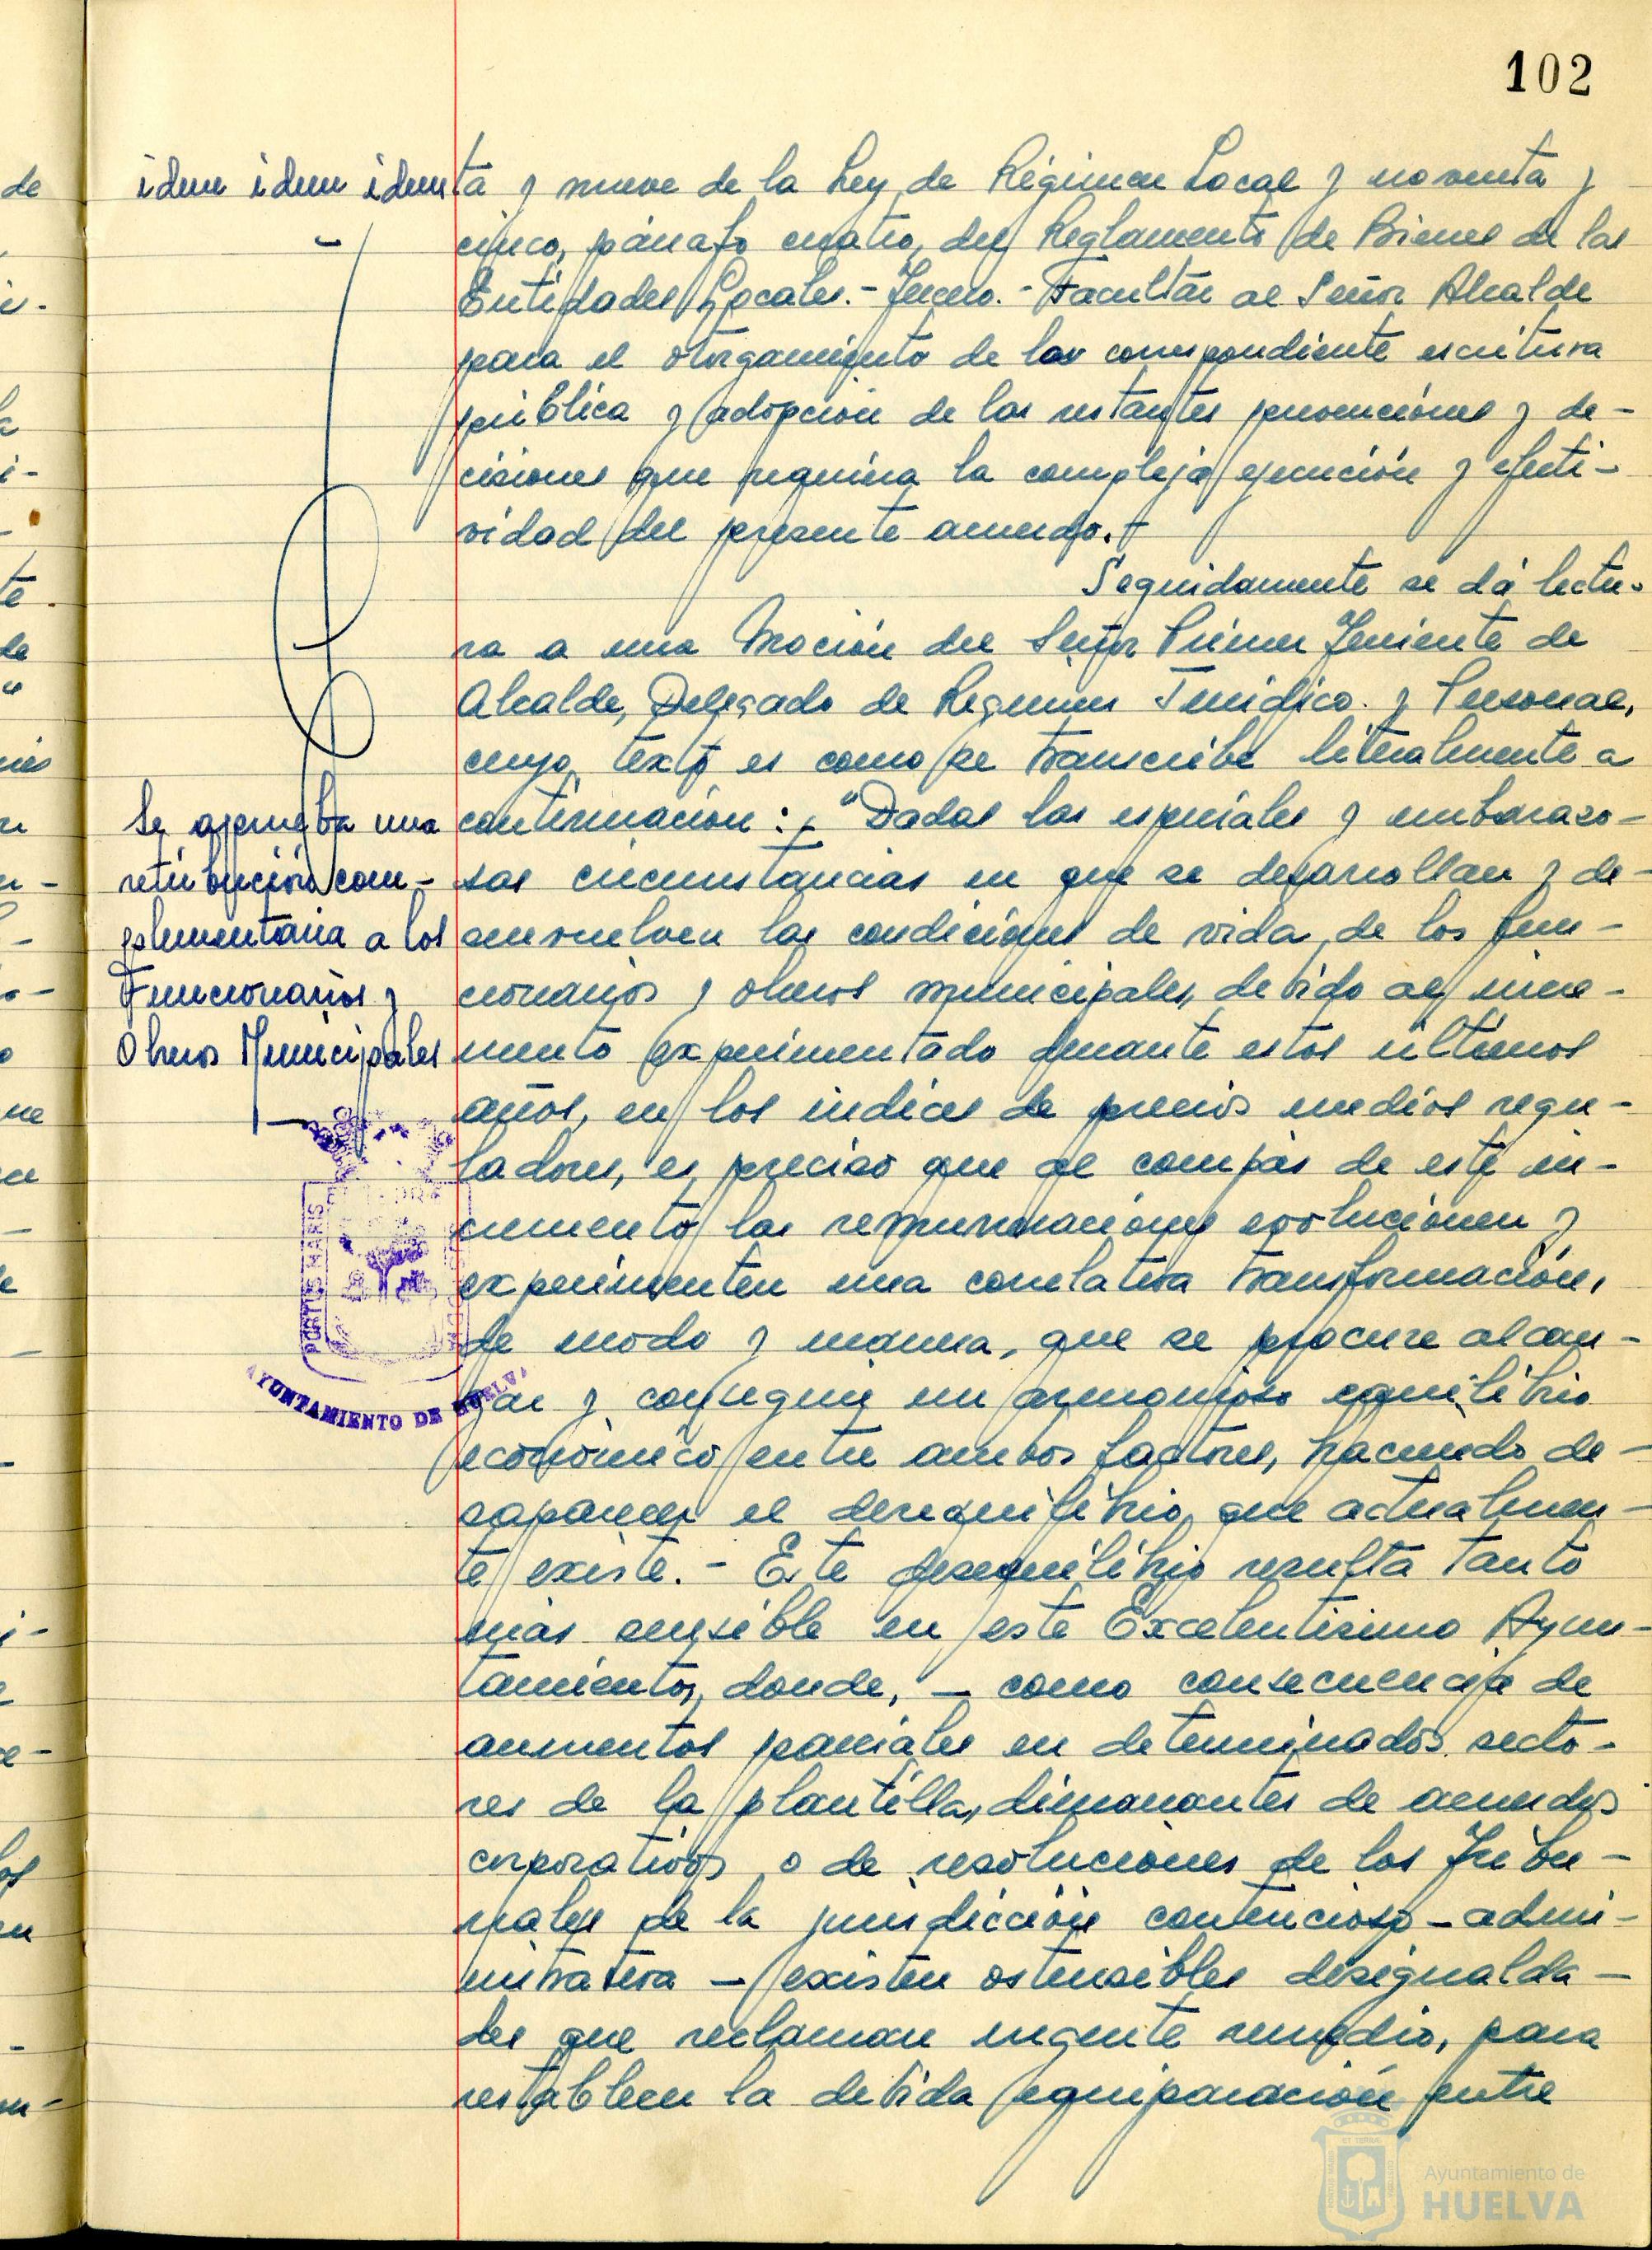 102
idem idem idem
ta y nueve de la Ley de Régimen Local y noventa y
cinco, párrafo cuatro, del Reglamento de Bienes de las
Entidades Locales.- Tercero.- Facultar al Señor Alcalde
para el otorgamiento de la correspondiente escritura
pública y adopción de las restantes prevenciones y de-
cisiones que requiera la compleja ejecución y efecti-
vidad del presente acuerdo.-
Seguidamente se dá lectu-
ra a una Moción del Señor Primer Teniente de
Alcalde, Delegado de Regimen Juridico y Personal,
cuyo texto es como se transcribe literalmente a
continuación: - "Dadas las especiales y embarazo-
sas circunstancias en que se desarrollan y de-
senvuelven las condiciones de vida de los fun-
cionarios y obreros municipales, debido al incre-
mento experimentado durante estos últimos
años, en los indices de precios medios regu-
ladores, es preciso que al compás de este in-
cremento las remuneraciones evolucionen y
experimenten una correlativa transformación,
de modo y manera, que se procure alcan-
zar y conseguir un armonioso equilibrio
económico entre ambos factores, haciendo de-
saparecer el desequilibrio que actualmen-
te existe.- Este desequilibrio resulta tanto
más sensible en este Excelentisimo Ayun-
tamiento, donde, - como consecuencia de
aumentos parciales en determinados secto-
res de la plantilla, dimanantes de acuerdos
corporativos o de resoluciones de los Tribu-
nales de la jurisdicción contencioso-admi-
nistrativa - existen ostensibles desigualda-
des que reclaman urgente remedio, para
restablecer la debida equiparación entre
Se aprueba una
retribución com-
plementaria a los
Funcionarios y
Obreros Municipales
PORTUS MARIS
AYUNTAMIENTO DE HUELVA
Ayuntamiento de
HUELVA